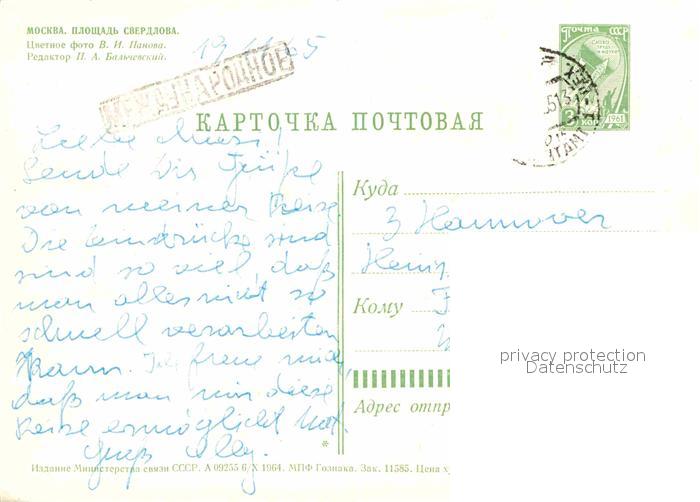 МОСКВА. ПЛОЩАДЬ СВЕРДЛОВА.
Цветное фото В. И. Панова.
Редактор П. А. Бальчевский.
МЕЖДУНАРОДНОЕ
Почта СССР
3 коп 1961
КАРТОЧКА ПОЧТОВАЯ
Sende Dir Grüße
von meiner Reise.
Die Eindrücke sind
sind so viel, daß
man alles nicht so
schnell verarbeiten
kann. Ich freue mich,
daß man mir diese
Reise ermöglicht hat.
Gruß
Куда
3 Hannover
Кому
privacy protection
Datenschutz
Адрес отпр
Издание Министерства связи СССР. А 09255 6/X 1964. МПФ Гознака. Зак. 11585. Цена